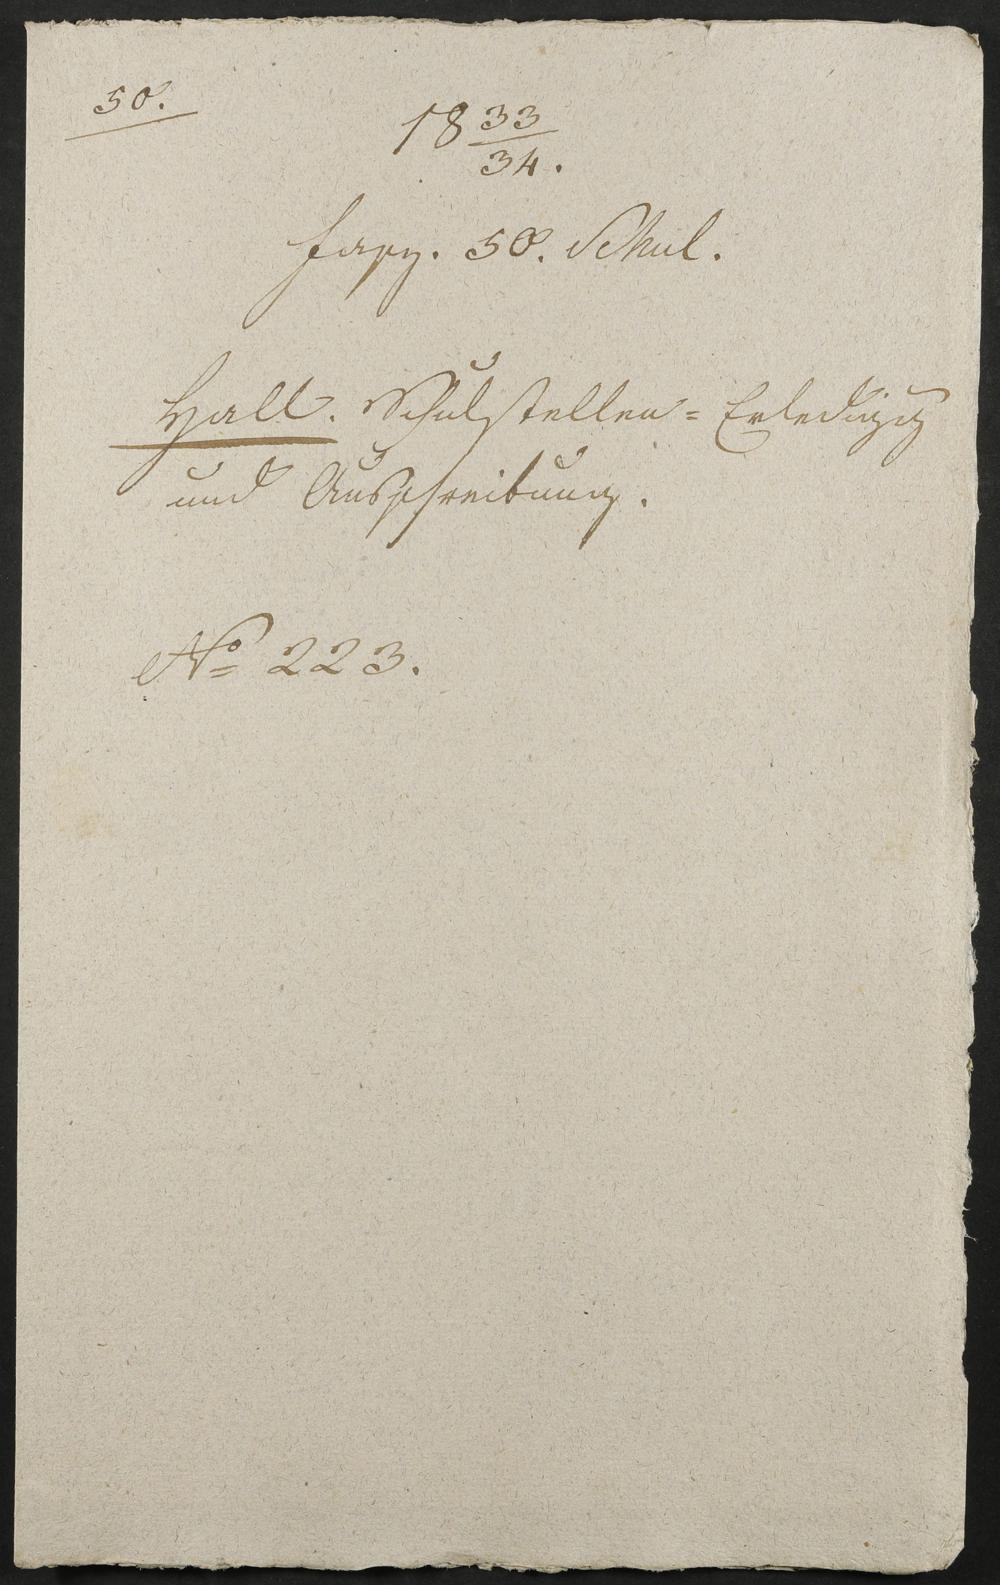 50.
18 33/34.
Fasz. 50. Schul.
Hall. Schulstellen = Erledigung
und Ausschreibung.
No 223.